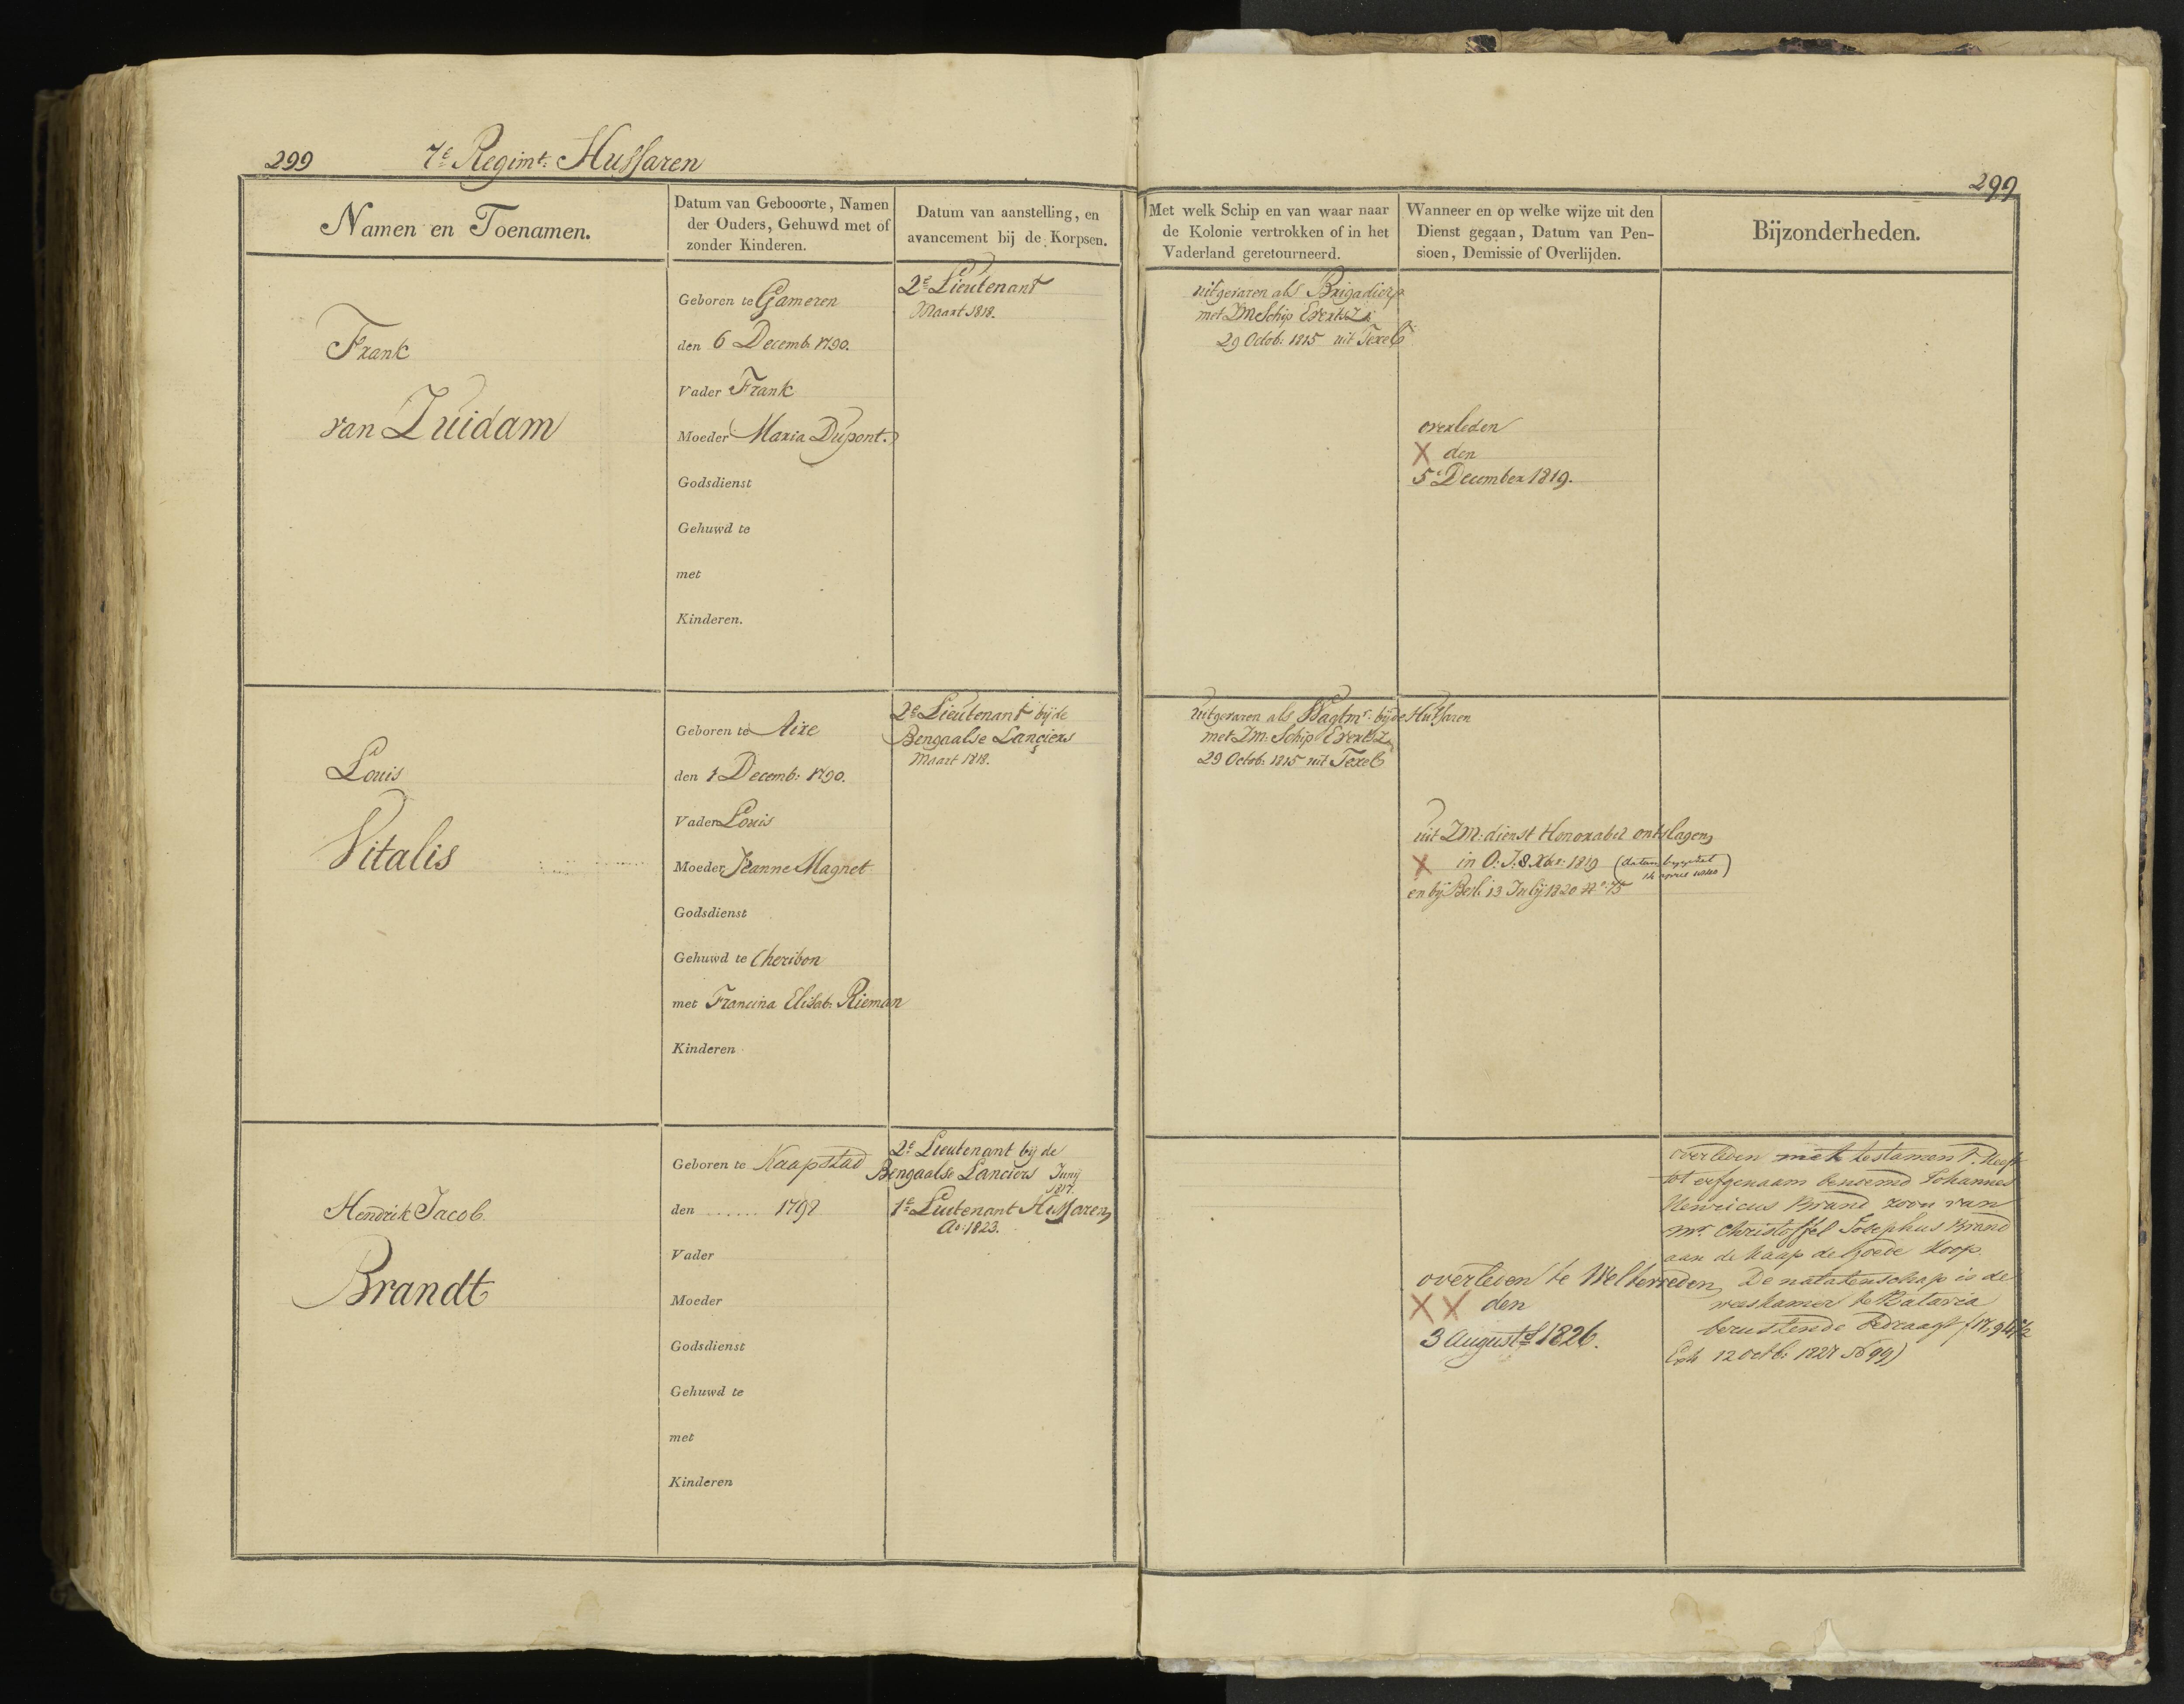 299
7e Regimt. Hussaren
299
Namen en Toenamen.
Datum van Gebooorte, Namen
der Ouders, Gehuwd met of
zonder Kinderen.
Datum van aanstelling, en
avancement bij de Korpsen.
Met welk Schip en van waar naar
de Kolonie vertrokken of in het
Vaderland geretourneerd.
Wanneer en op welke wijze uit den
Dienst gegaan, Datum van Pen-
sioen, Demissie of Overlijden.
Bijzonderheden.
Frank
van Zuidam
Geboren te Gameren
den 6 Decemb. 1790.
Vader Frank
Moeder Maria Dupont.
Godsdienst
Gehuwd te
met
Kinderen.
2e Lieutenant
Maart 1818.
uitgevaren als Brigadier
met ZM Schip Evertsz
29 Octob: 1815 uit Texel
overleden
X den
5e December 1819.
Louis
Vitalis
Geboren te Aixe
den 1 Decemb: 1790.
Vader Louis
Moeder Jeanne Magnet
Godsdienst
Gehuwd te Cheribon
met Francina Elisab: Rieman
Kinderen
2e Lieutenant bij de
Bengaalse Lanciers
Maart 1818.
uitgevaren als Wagtmr. bij de Hussaren
met ZM: Schip Evertsz
29 Octob: 1815 uit Texel
uit ZM: dienst Honorabel ontslagen
X in O: I: 8 Xbr: 1819 (datum
14 april 1820)
en bij Besl. 13 Julij 1820 No. 75
Hendrik Jacob
Brandt
Geboren te Kaapstad
den ...... 1792
Vader
Moeder
Godsdienst
Gehuwd te
met
Kinderen
2e Lieutenant bij de
Bengaalse Lanciers Junij
1817.
1e Luitenant Hussaren
Ao. 1823.
overleden te Weltevreden
X X den
3 Augusts 1826.
overleden met testament. Heeft
tot erfgenaam benoemd Johannes
Henricus Brand zoon van
Mr. Christoffel Josephus Brand
aan de Kaap de Goede Hoop.
De natatenschap is de
weeskamer te Batavia
berustende bedraagt
12 Octb: 1827 No 99)